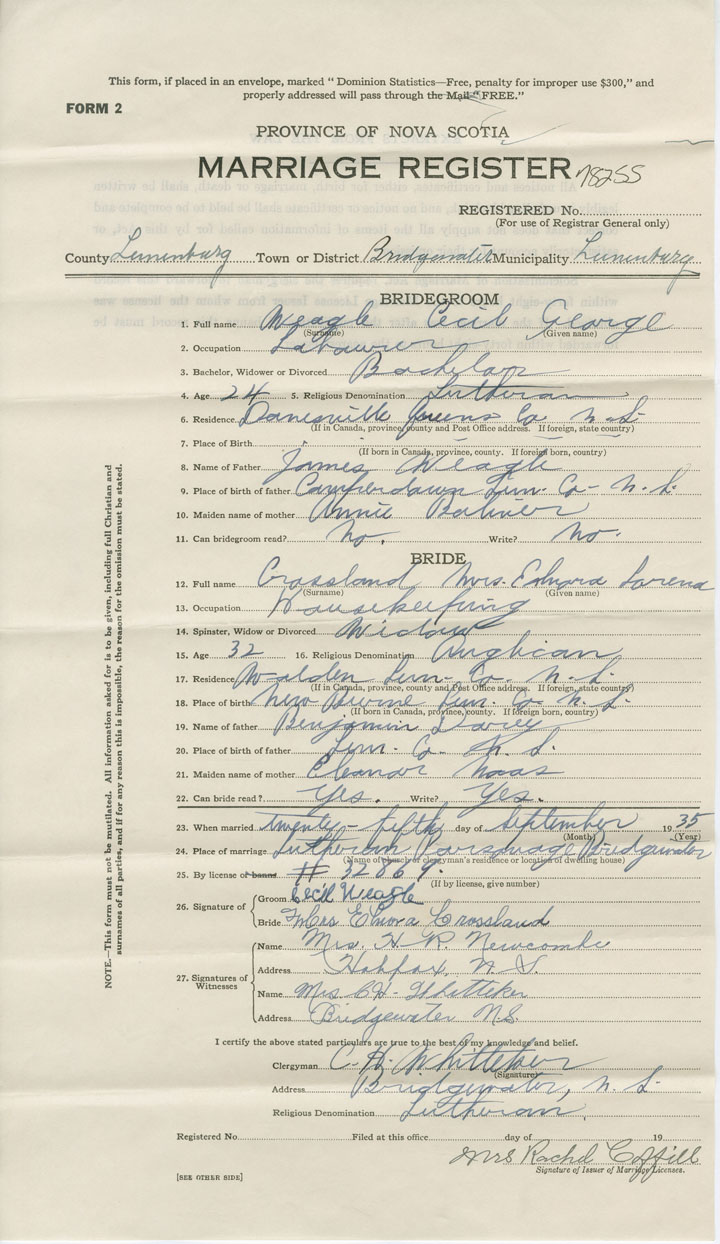 This form, if placed in an envelope, marked "Dominion Statistics—Free, penalty for improper use $300," and
properly addressed will pass through the Mail "FREE."
FORM 2
PROVINCE OF NOVA SCOTIA
MARRIAGE REGISTER 78255
REGISTERED No.
(For use of Registrar General only)
County Lunenburg Town or District Bridgewater Municipality Lunenburg
BRIDEGROOM
1. Full name Weagle Cecil George
(Surname) (Given name)
2. Occupation Labourer
3. Bachelor, Widower or Divorced Bachelor
4. Age 24 5. Religious Denomination Lutheran
6. Residence Danesville Queens Co N.S.
(If in Canada, province, county and Post Office address. If foreign, state country)
7. Place of Birth
(If born in Canada, province, county. If foreign born, country)
8. Name of Father James Weagle
9. Place of birth of father Camperdown Lun. Co- N.S.
10. Maiden name of mother Annie
11. Can bridegroom read? No. Write? No.
BRIDE
12. Full name Crossland Mrs. Lorena
(Surname) (Given name)
13. Occupation Housekeeping
14. Spinster, Widow or Divorced Widow
15. Age 32 16. Religious Denomination Anglican
17. Residence Walden Lun. Co. N.S.
(If in Canada, province, county and Post Office address. If foreign, state country)
18. Place of birth New Lun. Co. N.S.
(If born in Canada, province, county. If foreign born, country)
19. Name of father Benjamin
20. Place of birth of father Lun. Co. N.S.
21. Maiden name of mother Eleanor Naas
22. Can bride read? Yes. Write? Yes.
23. When married twenty-fifth day of September 1935
(Month) (Year)
24. Place of marriage Lutheran Parsonage Bridgewater
(Name of church or clergyman's residence or location of dwelling house)
25. By license or banns # 32869.
(If by license, give number)
26. Signature of
Groom Cecil Weagle
Bride Mrs Elnora Crossland
27. Signatures of Witnesses
Name Mrs. H. R. Newcombe
Address Halifax, N.S.
Name Mrs C H- Whitteker
Address Bridgewater N.S.
I certify the above stated particulars are true to the best of my knowledge and belief.
Clergyman C. H. Whitteker
(Signature)
Address Bridgewater, N.S.
Religious Denomination Lutheran.
Registered No. Filed at this office day of 19
Mrs Rachel
Signature of Issuer of Marriage Licenses.
[SEE OTHER SIDE]
NOTE.—This form must not be mutilated. All information asked for is to be given, including full Christian and
surnames of all parties, and if for any reason this is impossible, the reason for the omission must be stated.